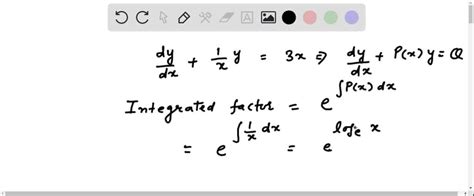 dy/dx + 1/x y = 3x ⇒ dy/dx + P(x) y = Q
Integrated factor = e^{∫P(x) dx}
= e^{∫1/x dx} = e^{log_e x}